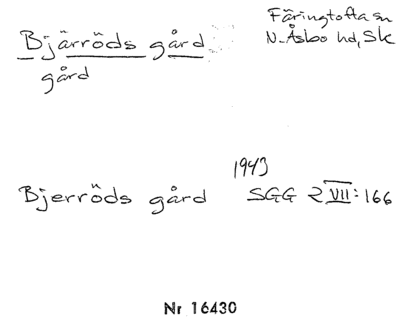 Bjärröds gård
gård
Färingtofta sn
N. Åsbo hd, Sk
1943
Bjerröds gård SGG 2 VII: 166
Nr 16430